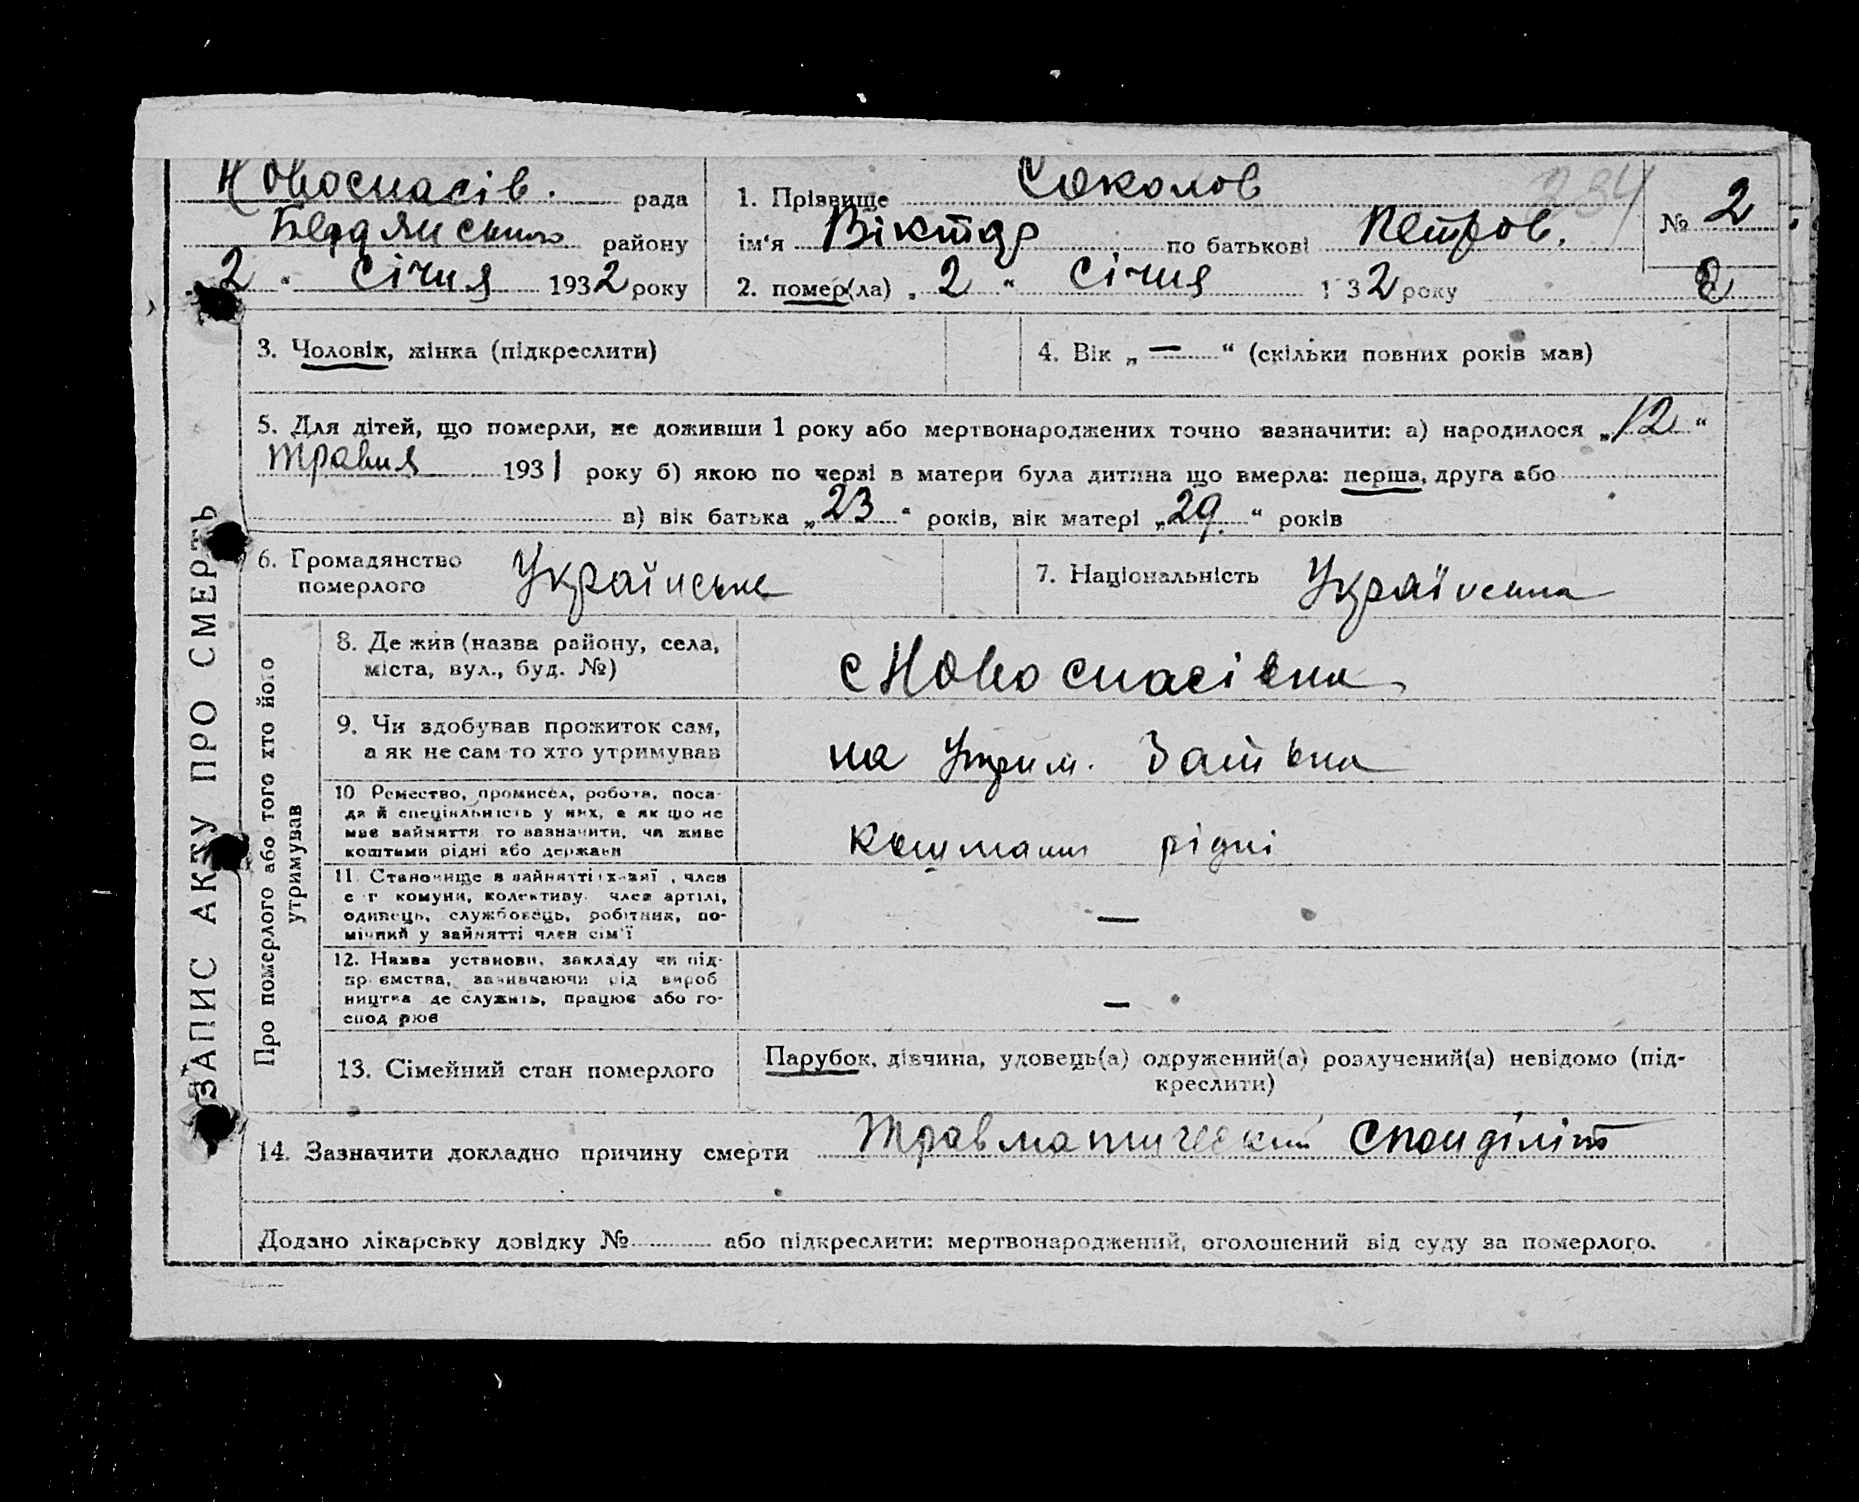 Новоспасів. рада
Бердянського району
2 " Січня 1932 року
1. Прізвище Соколов
ім'я Віктор по батькові Петров.
2. помер(ла) „ 2 " Січня 1932 року
234
№ 2
2
ЗАПИС АКТУ ПРО СМЕРТЬ
3. Чоловік, жінка (підкреслити)
4. Вік „ — “ (скільки повних років мав)
5. Для дітей, що померли, не доживши 1 року або мертвонароджених точно зазначити: а) народилося „ 12 “
травня 1931 року б) якою по черзі в матери була дитина що вмерла: перша, друга або
в) вік батька „ 23 “ років, вік матері „ 29. “ років
6. Громадянство
померлого Українське
7. Національність Українська
Про померлого або того хто його
утримував
8. Де жив (назва району, села,
міста, вул., буд. №)
с Новоспасівка
9. Чи здобував прожиток сам,
а як не сам то хто утримував
на Утрим. Батька
10 Ремество, промисел, робота, поса-
да й спеціяльність у них, а як що не
має зайняття то зазначити, чи живе
коштами рідні або держави
Коштами рідні
11. Становище в зайнятті: хазяї, член
с-г комуни, колективу, член артілі,
одинець, службовець, робітник, по-
мічний у зайнятті член сім'ї
—
12. Назва установи, закладу чи під-
приємства, зазначаючи рід вироб
ництва де служить, працює або го-
спод рює
—
13. Сімейний стан померлого
Парубок, дівчина, удовець(а) одружений(а) розлучений(а) невідомо (під-
креслити)
14. Зазначити докладно причину смерти Травматический Спонділіт
Додано лікарську довідку № або підкреслити: мертвонароджений, оголошений від суду за померлого.